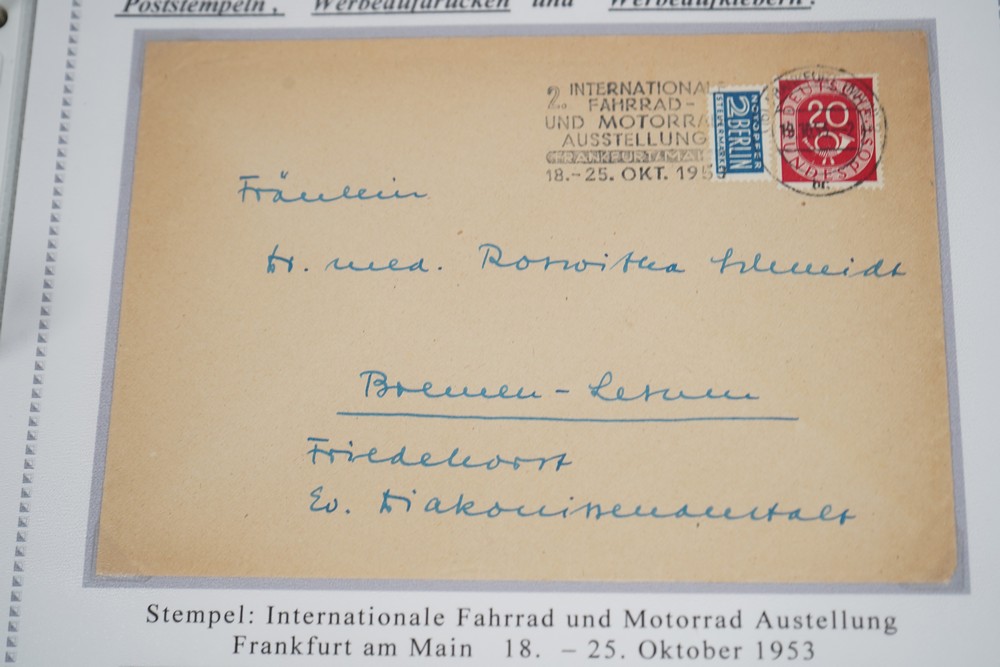 Poststempeln, Werbeaufdrucken und Werbeaufklebern.
2. INTERNATIONALE
FAHRRAD-
UND MOTORRA
AUSSTELLUNG
FRANKFURT/MAI
18.-25. OKT. 195
NOTOPFER
2 BERLIN
STEUERMARKE
DEUTSCHE
20
BUNDESPOST
Fräulein
Dr. med. Roswitha Schmidt
Bremen-Lesum
Friedehorst
Ev. Diakonissenanstalt
Stempel: Internationale Fahrrad und Motorrad Austellung
Frankfurt am Main 18. – 25. Oktober 1953